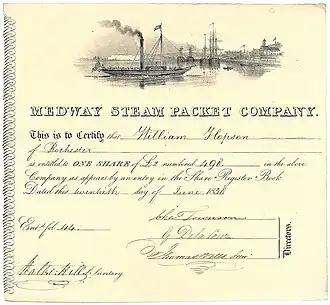 MEDWAY STEAM PACKET COMPANY.
This is to Certify that William Hopson
of Rochester
is entitled to ONE SHARE of £2 numbered 498 in the above
Company as appears by an entry in the Share Register Book
Dated this twentieth day of June 1838
Chas Townson
Entd fol 44
G. Dela Cour
Thomas Wells Junr
Directors.
Secretary